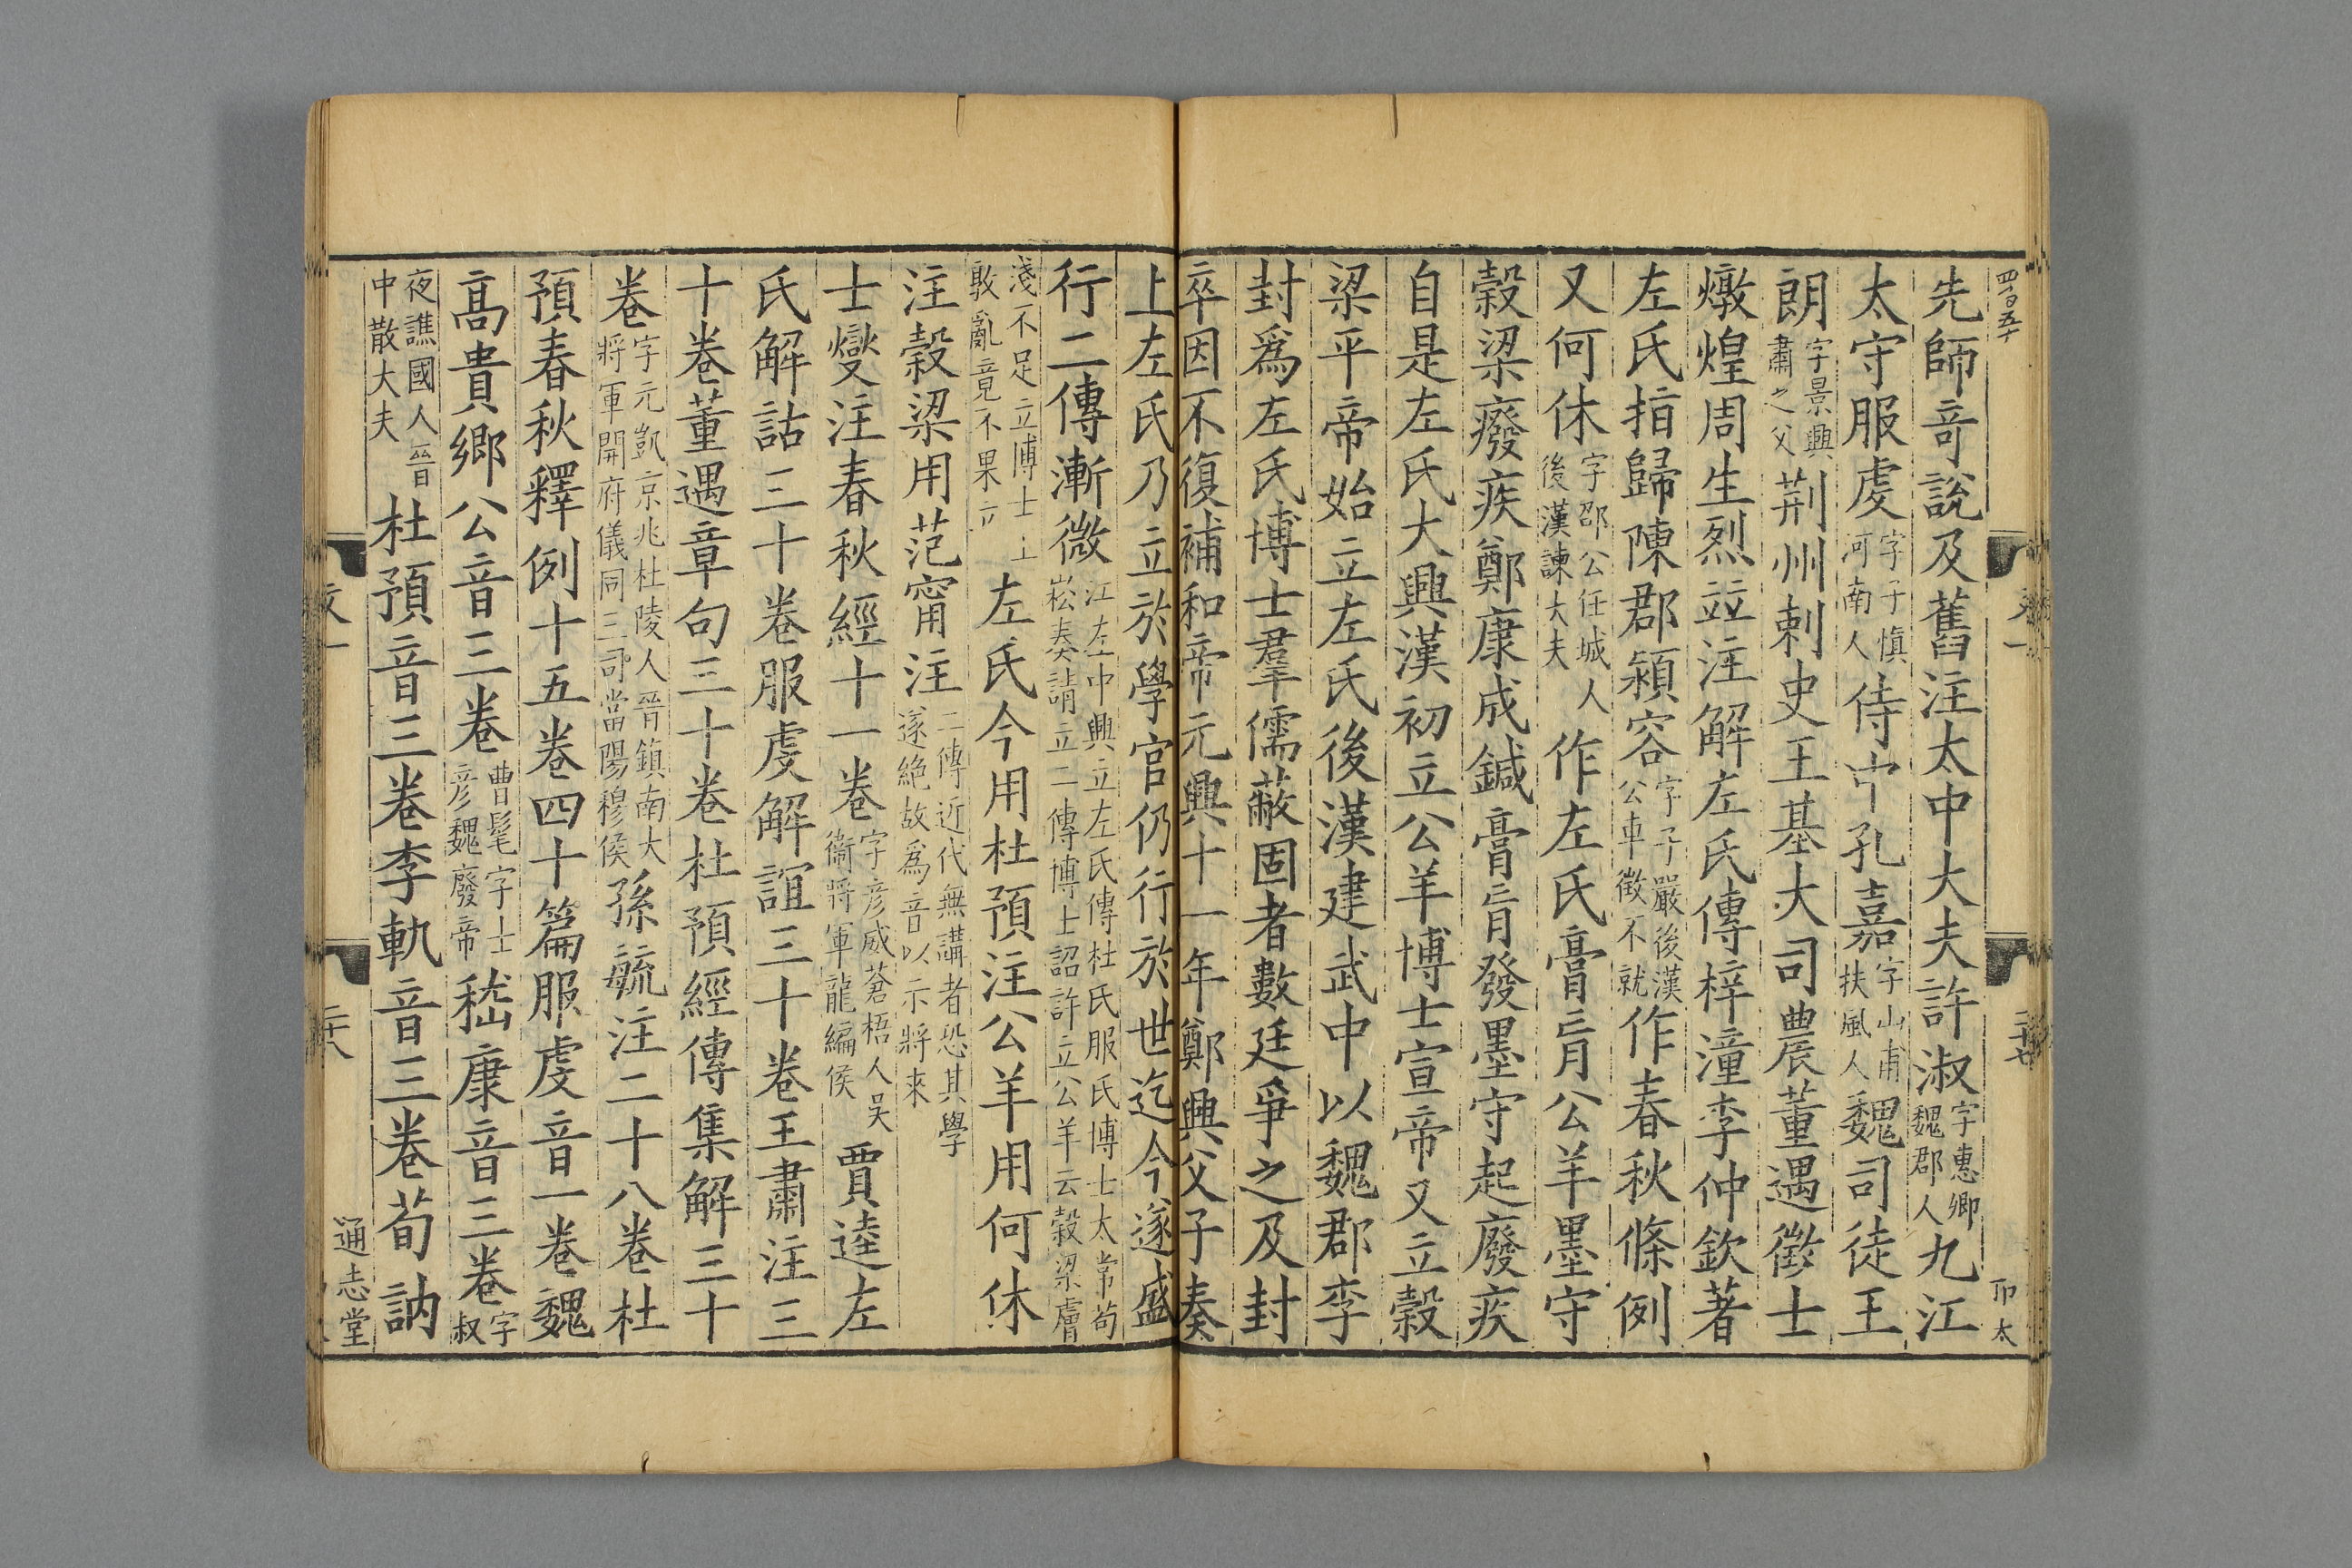 四百五十
先師奇說及舊注太中大夫許淑字惠卿魏郡人九江
太守服虔字子慎河南人侍中孔嘉字山甫扶風人魏司徒王
朗字景興肅之父荊州刺史王基大司農董遇徵士
燉煌周生烈竝注解左氏傳梓潼李仲欽著
左氏指歸陳郡潁容字子嚴後漢公車徵不就作春秋條例
又何休字邵公任城人後漢諫大夫作左氏膏肓公羊墨守
穀梁癈疾鄭康成鍼膏肓發墨守起廢疾
自是左氏大興漢初立公羊博士宣帝又立穀
梁平帝始立左氏後漢建武中以魏郡李
封爲左氏博士羣儒蔽固者數廷爭之及封
卒因不復補和帝元興十一年鄭興父子奏
上左氏乃立於學官仍行於世迄今遂盛
行二傳漸微江左中興立左氏傳杜氏服氏博士太常荀崧奏請立二傳博士詔許立公羊云穀梁膚
淺不足立博士王敦亂竟不果立左氏今用杜預注公羊用何休
注穀梁用范甯注二傳近代無講者恐其學遂絶故爲音以示將來
士燮注春秋經十一卷字彦威蒼梧人吳衞將軍龍編侯賈逵左
氏解詁三十卷服虔解誼三十卷王肅注三
十卷董遇章句三十卷杜預經傳集解三十
卷字元凱京兆杜陵人晉鎮南大將軍開府儀同三司當陽穆侯孫毓注二十八卷杜
預春秋釋例十五卷四十篇服虔音一卷魏
高貴鄉公音三卷曹髦字士彦魏廢帝嵇康音三卷字叔
夜譙國人晉中散大夫杜預音三卷李軌音三卷荀訥
通志堂